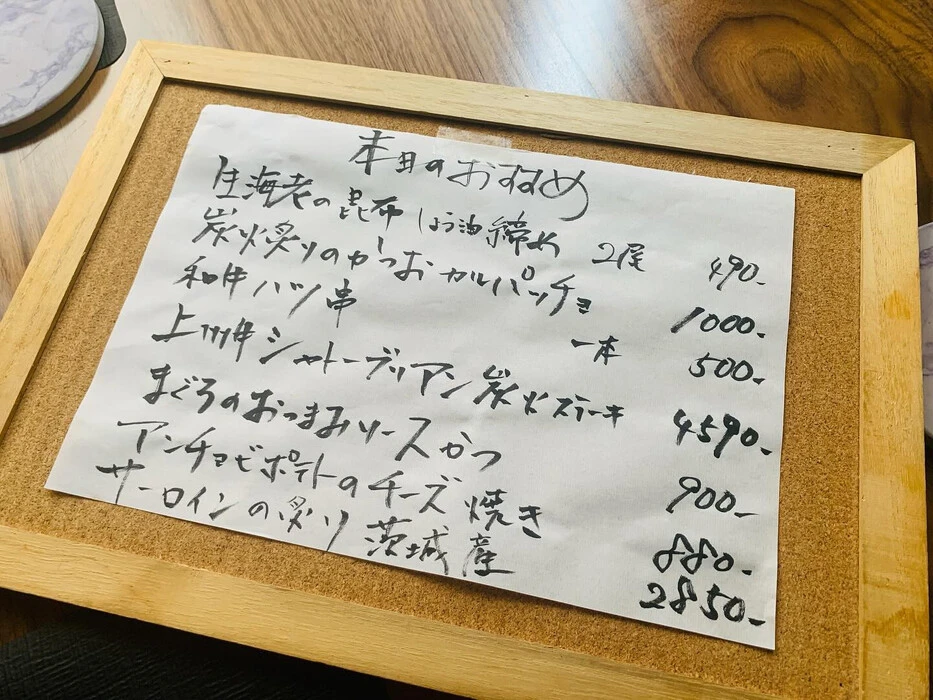 本日のおすすめ
生海老の昆布しょう油締め 2尾 490-
炭火炙りのかつおカルパッチョ 1000-
和牛ハツ串 一本 500-
上州牛シャトーブリアン炭火ステーキ 4590-
まぐろのおつまみソースかつ 900-
アンチョビポテトのチーズ焼き 880-
サーロインの炙り 茨城産 2850-